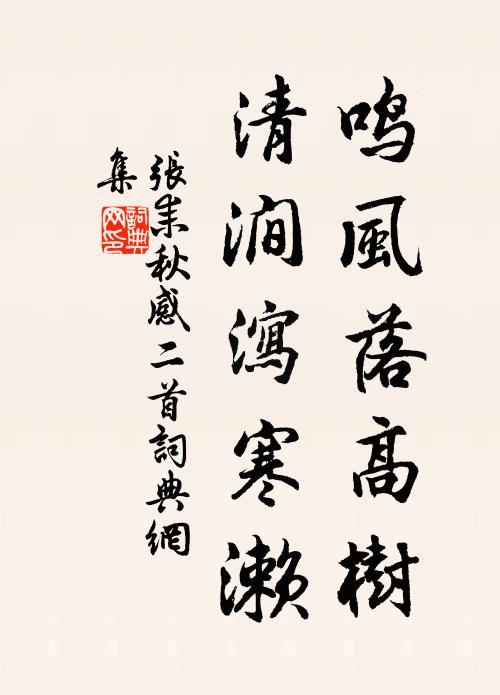 鸣風落高樹
清澗瀉寒瀨
張耒秋感二首詞典網
集
詞典网印